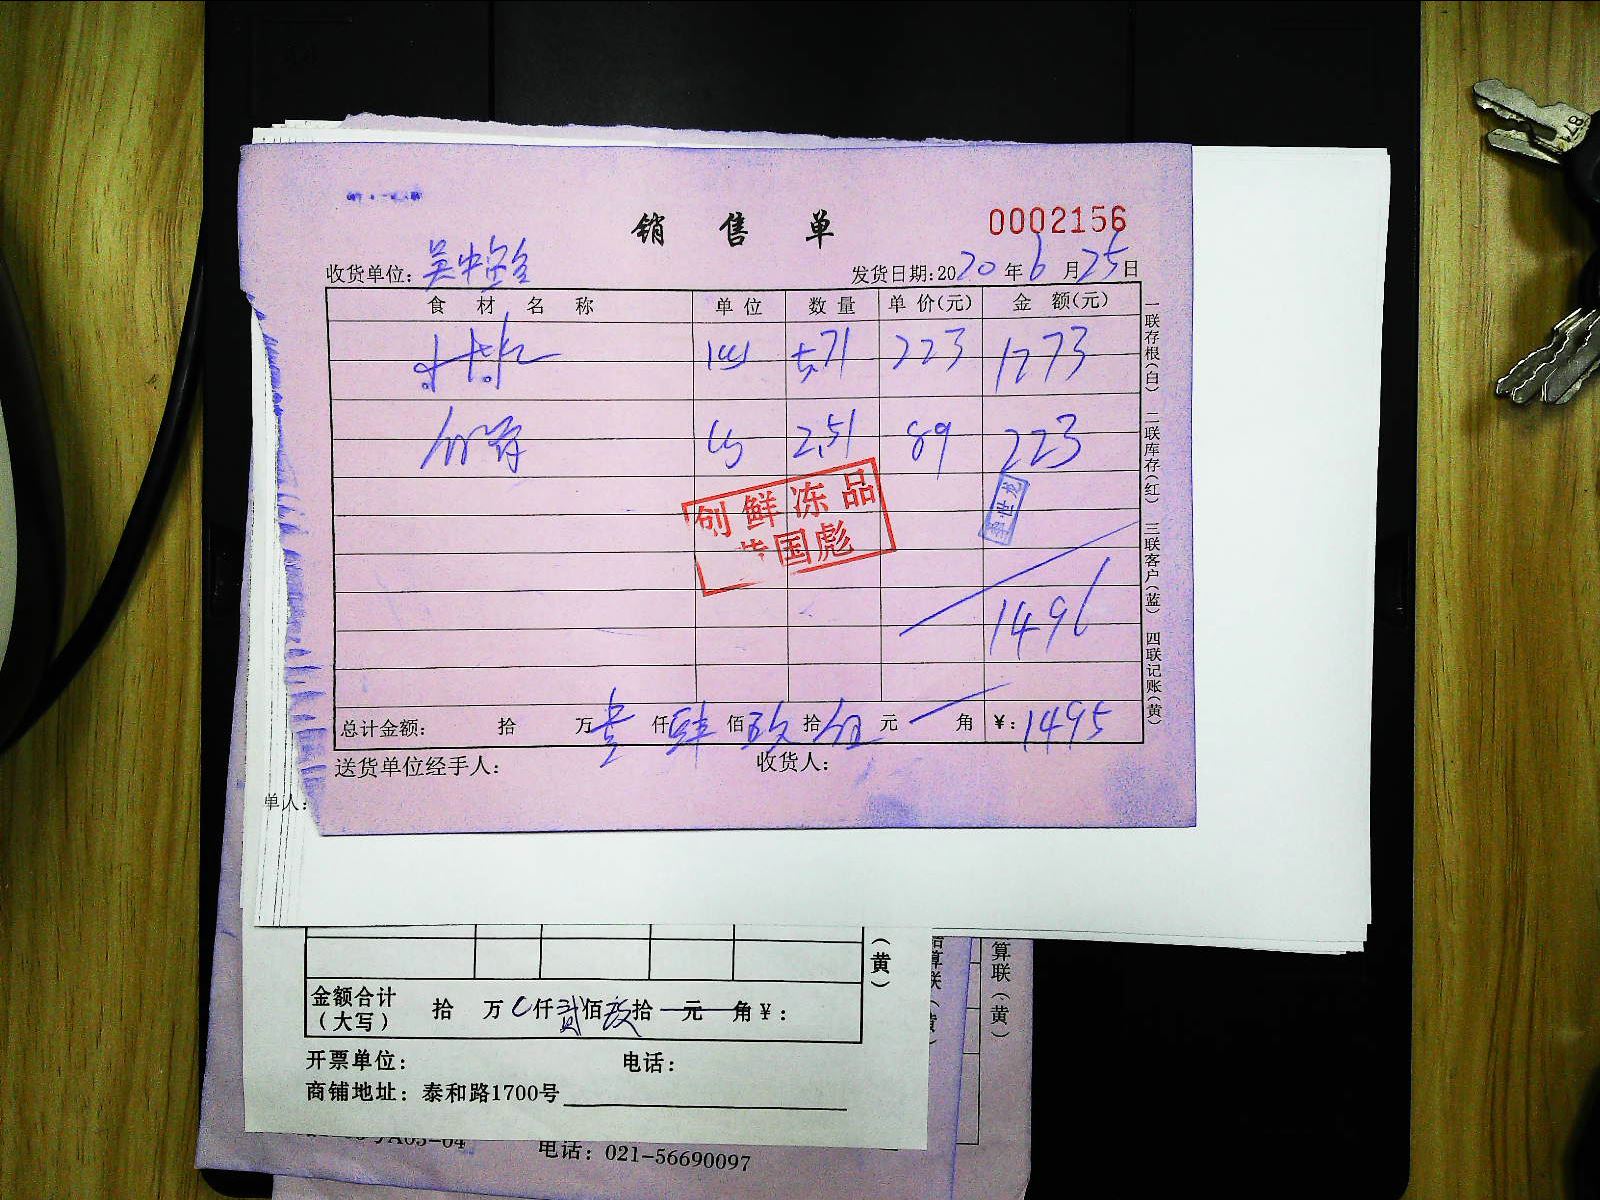 销售单
0002156
收货单位: 吴中
发货日期:2020年6月25日
食材名称 单位 数量 单价(元) 金额(元)
5.71 223 1273
2.51 89 223
创鲜冻品
国彪
1496
总计金额: 拾 万壹仟肆佰玖拾伍元 角 ¥:1495
送货单位经手人: 收货人:
一联存根(白) 二联库存(红) 三联客户(蓝) 四联记账(黄)
单人:
(黄)
金额合计(大写) 拾 万 仟贰佰玖拾 元 角¥:
开票单位: 电话:
商铺地址: 泰和路1700号
算联(黄)
算联(黄)
电话: 021-56690097